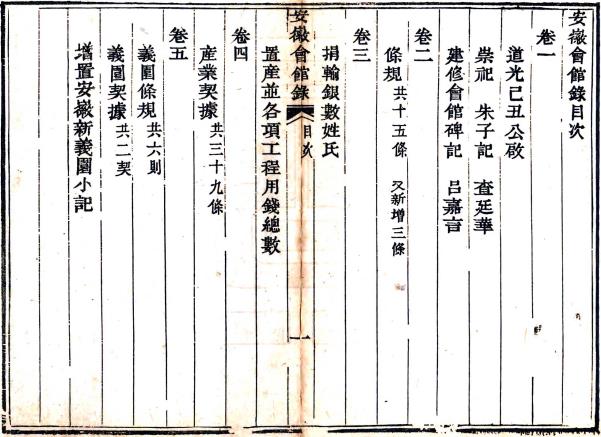 安徽會館錄目次
卷一
道光己丑公啟
崇祀 朱子記 査廷華
建修會館碑記 呂嘉言
卷二
條規 共十五條 又新增三條
卷三
捐輸銀數姓氏
安徽會館錄 目次 一
置產並各項工程用錢總數
卷四
產業契據 共三十九條
卷五
義園條規 共六則
義園契據 共二契
增置安徽新義園小記